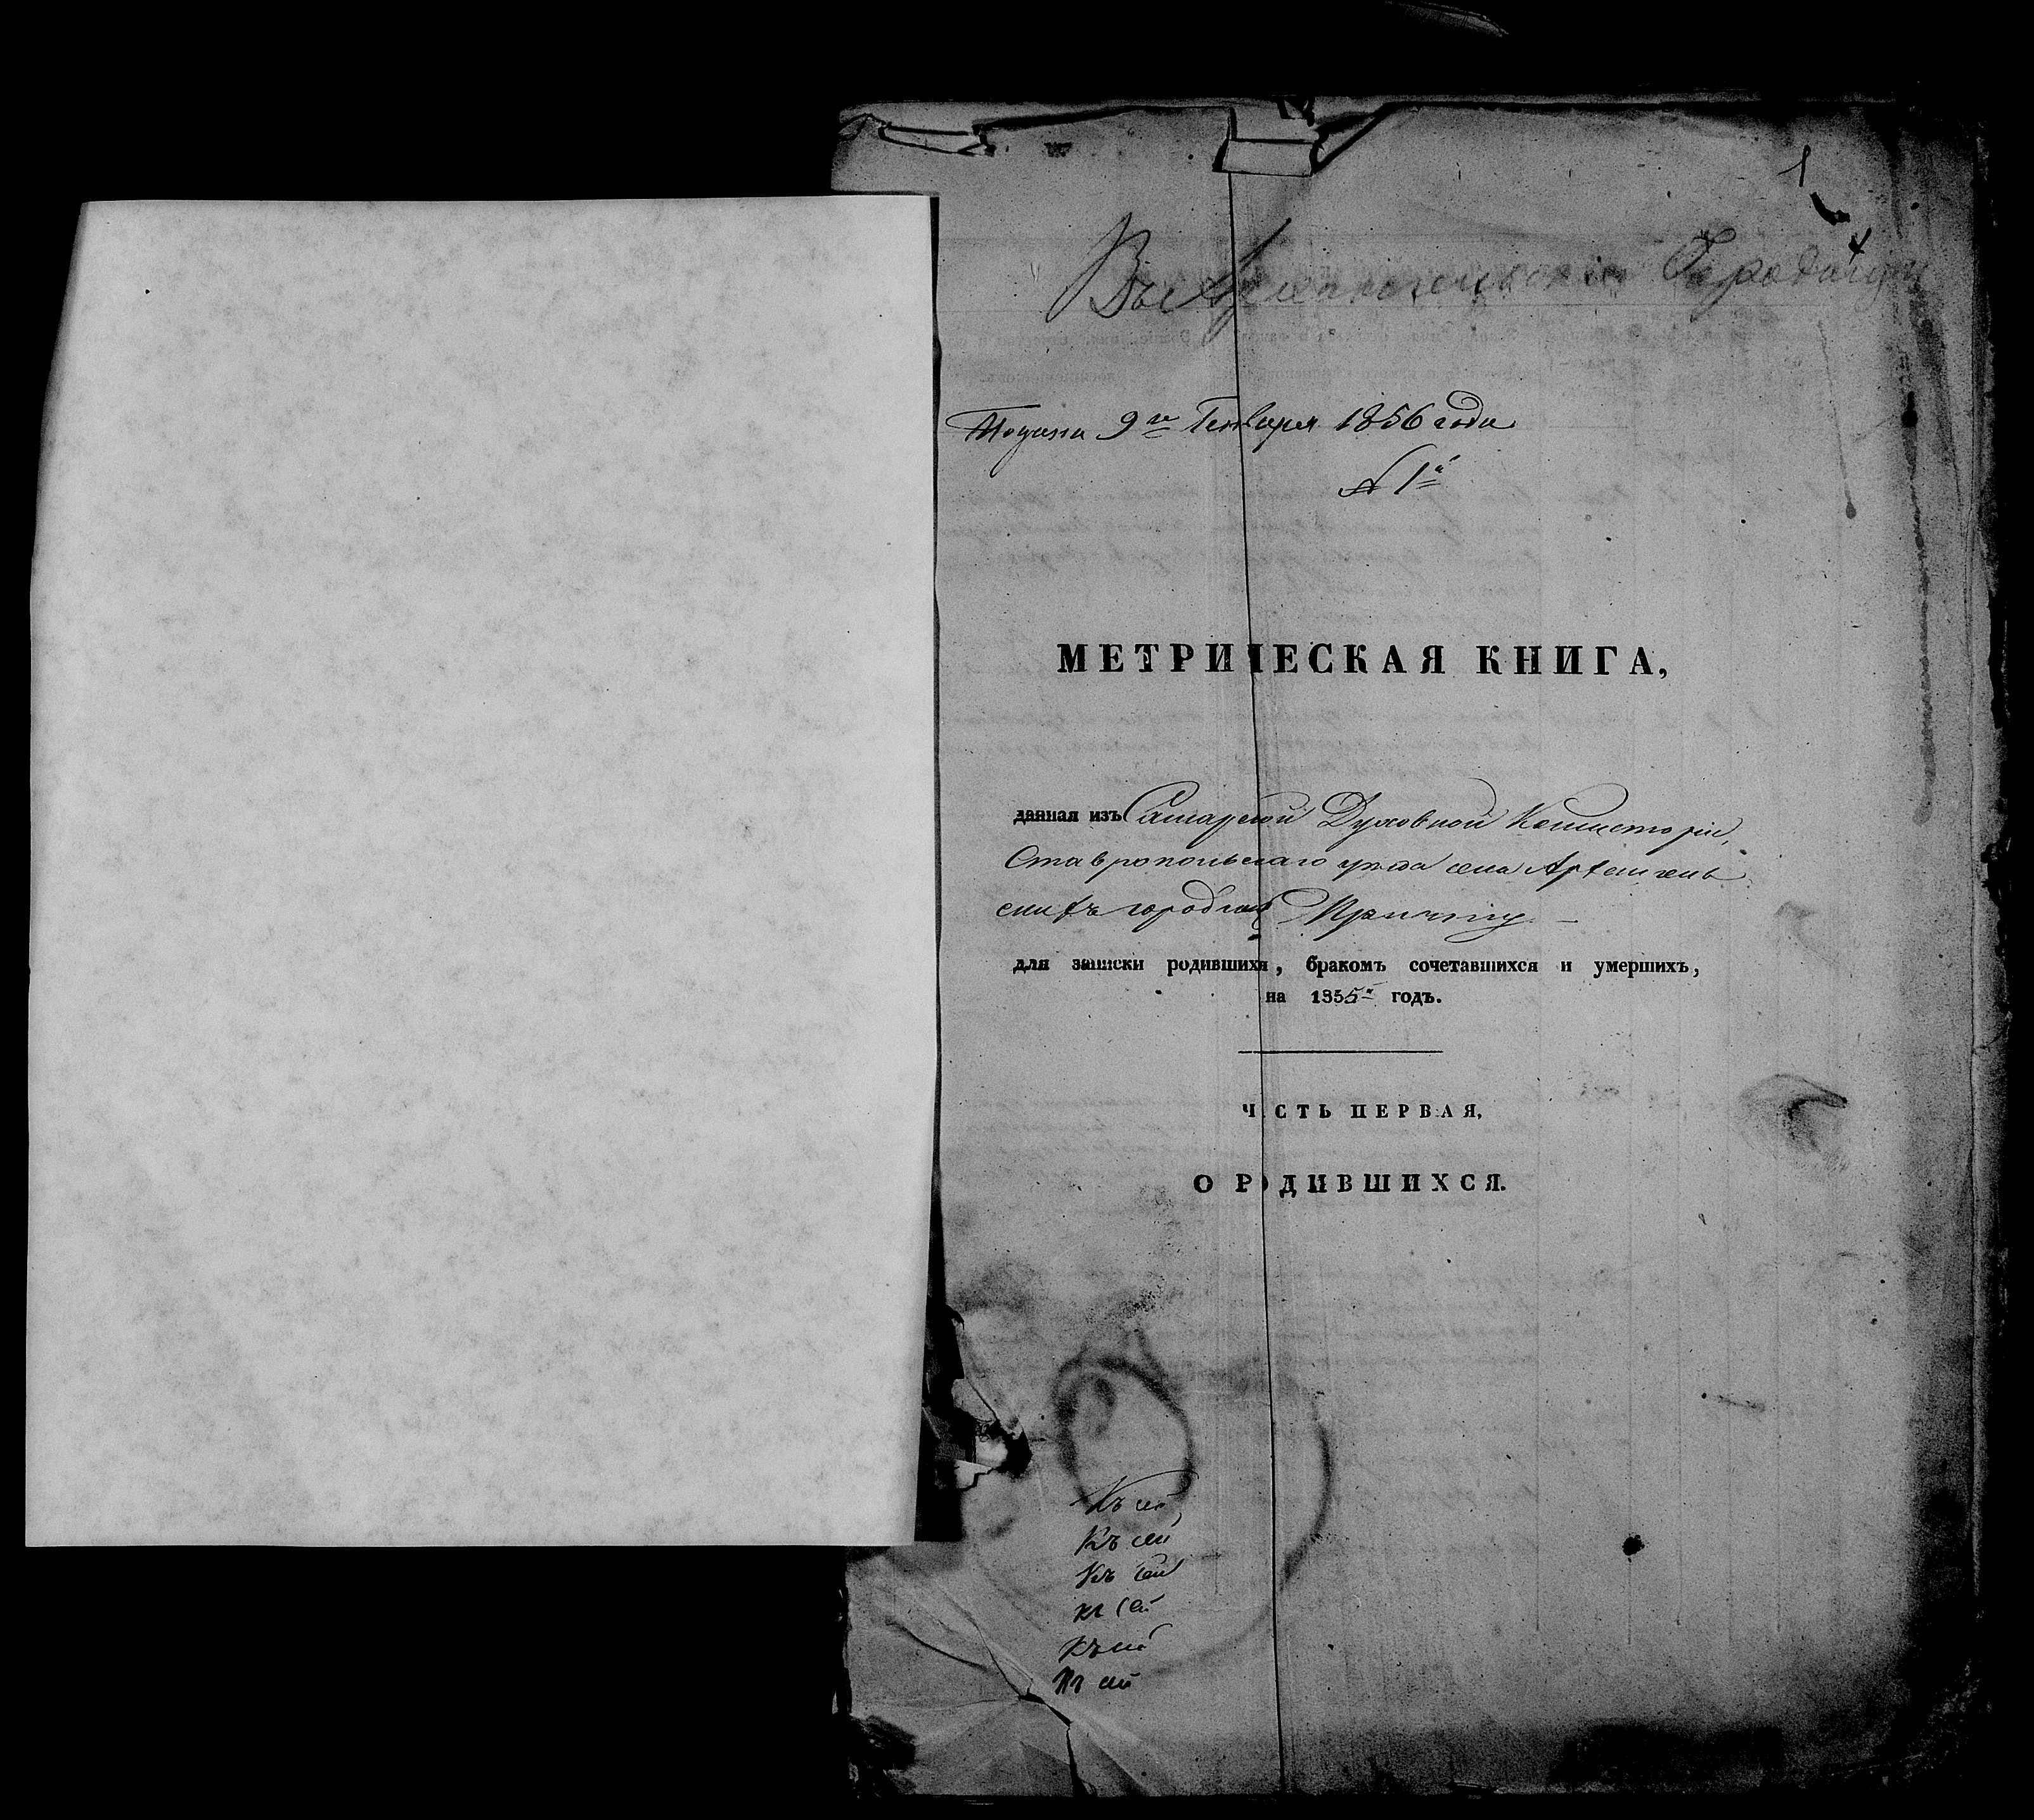 1
Подана 9го Генваря 1856 года
№ 1й
МЕТРИЧЕСКАЯ КНИГА,
данная изъ Самарской Духовной Консисторіи,
Ставропольскаго уѣзда села
Причту
для записки родившихся, бракомъ сочетавшихся и умершихъ,
на 1855й годъ.
ЧАСТЬ ПЕРВАЯ,
О РОДИВШИХСЯ.
Къ сей
Къ сей
Къ сей
Къ сей
Къ сей
Къ сей